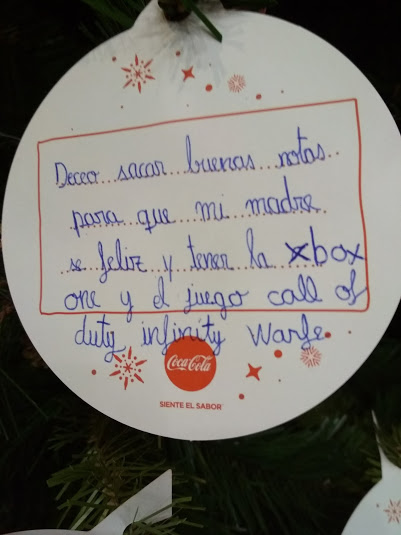 Deceo sacar buenas notas
para que mi madre
se feliz y tener la xbox
one y el juego call of
duty infinity Warfe
Coca-Cola
SIENTE EL SABOR